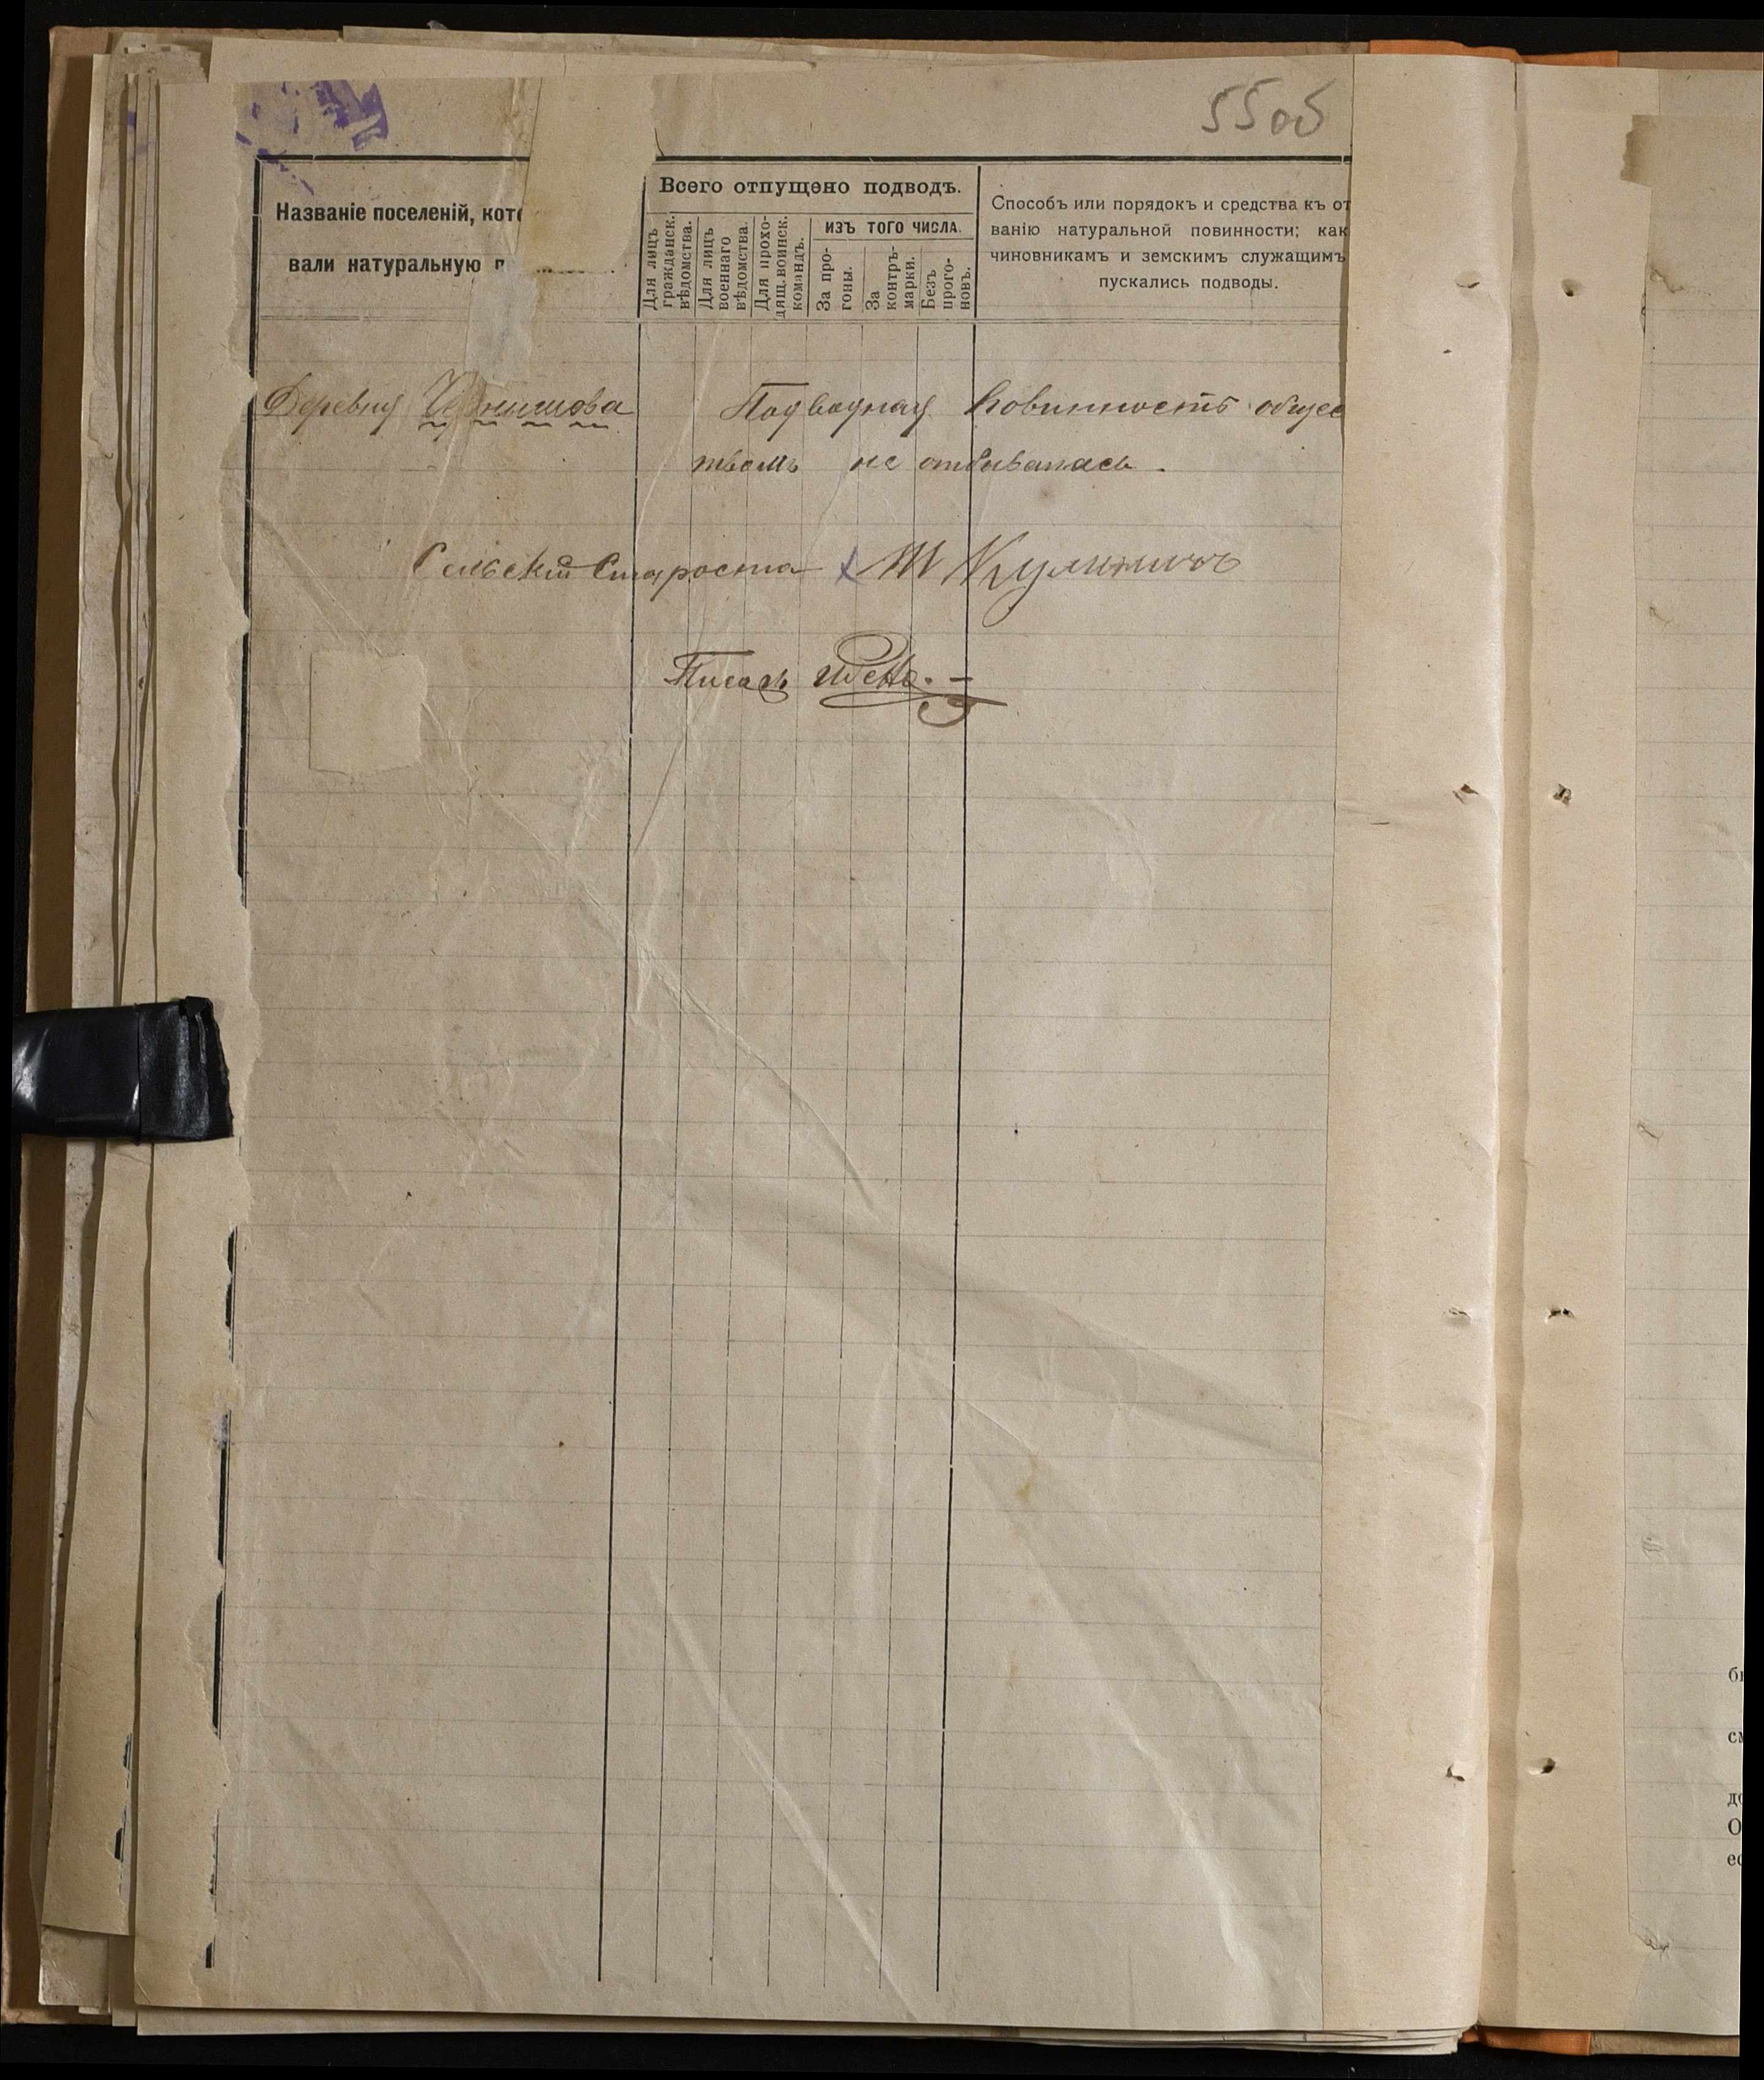 55об
Названіе поселеній, кото
вали натуральную п
Всего отпущено подводъ.
Для лицъ гражданск. вѣдомства.
Для лицъ военнаго вѣдомства.
Для прохо-дящ. воинск. командъ.
ИЗЪ ТОГО ЧИСЛА.
За про-гоны.
За контръ-марки.
Безъ прого-новъ.
Способъ или порядокъ и средства къ от
ванію натуральной повинности; как
чиновникамъ и земскимъ служащимъ
пускались подводы.
Деревня
Подводная повинность общес
твомъ не отбывалась.
Сельскій Староста
Писарь
бы
см
до
О
ес